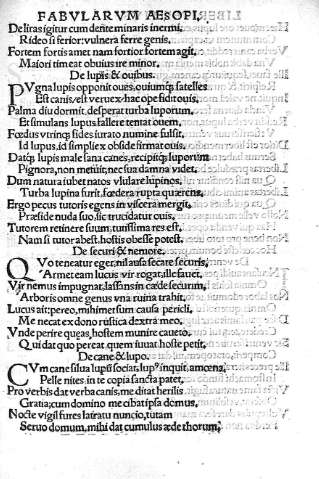 FABVLARVM AESOPI.
Deliras igitur cum dente minaris inermi,
Rideo si ferior: vulnera ferre genis,
Fortem fortis amet nam fortior fortem agit,
Maiori timeat obuius ire minor.
De lupis & ouibus.
PVgna lupos opponit oues, ouiumq; satelles
Est canis, est veruex hac ope fidit ouis,
Palma diu dormit, desperat turba luporum,
Et simulans lupus fallere tentat ouem,
Fœdus vtrinq; fides iurato numine fulsit,
Id lupus, id simplex obside firmat ouis,
Datq; lupis male sana canes, recipitq; luporum
Pignora, non metuit, nec sua damna videt,
Dum natura iubet natos vlulare lupinos,
Turba lupina furit, fœdera rupta quærens,
Ergo pecus tutoris egens in viscera mergit,
Præside nuda suo, sic trucidatur ouis,
Tutorem retinere suum, tutissima res est,
Nam si tutor abest, hostis obesse potest.
De securi & nemore.
QVo teneatur eget, nil ausa secare securis,
Armet eam lucus vir rogat, ille fauet,
Vir nemus impugnat, lassans in cæde securim,
Arboris omne genus vna ruina trahit,
Lucus ait: pereo, mihimet sum causa pericli,
Me necat ex dono rustica dextra meo,
Vnde perire queas, hostem munire caueto,
Qui dat quo pereat quem iuuat hoste perit,
De cane & lupo.
CVm cane silua lupū sociat, lupꝰ inquit, amœna,
Pelle nites, in te copia sancta patet,
Pro verbis dat verba canis, me ditat herilis
Gratia, cum domino me cibat ipsa domus,
Nocte vigil fures latratu nuncio, tutam
Seruo domum, mihi dat cumulus æde thorum,